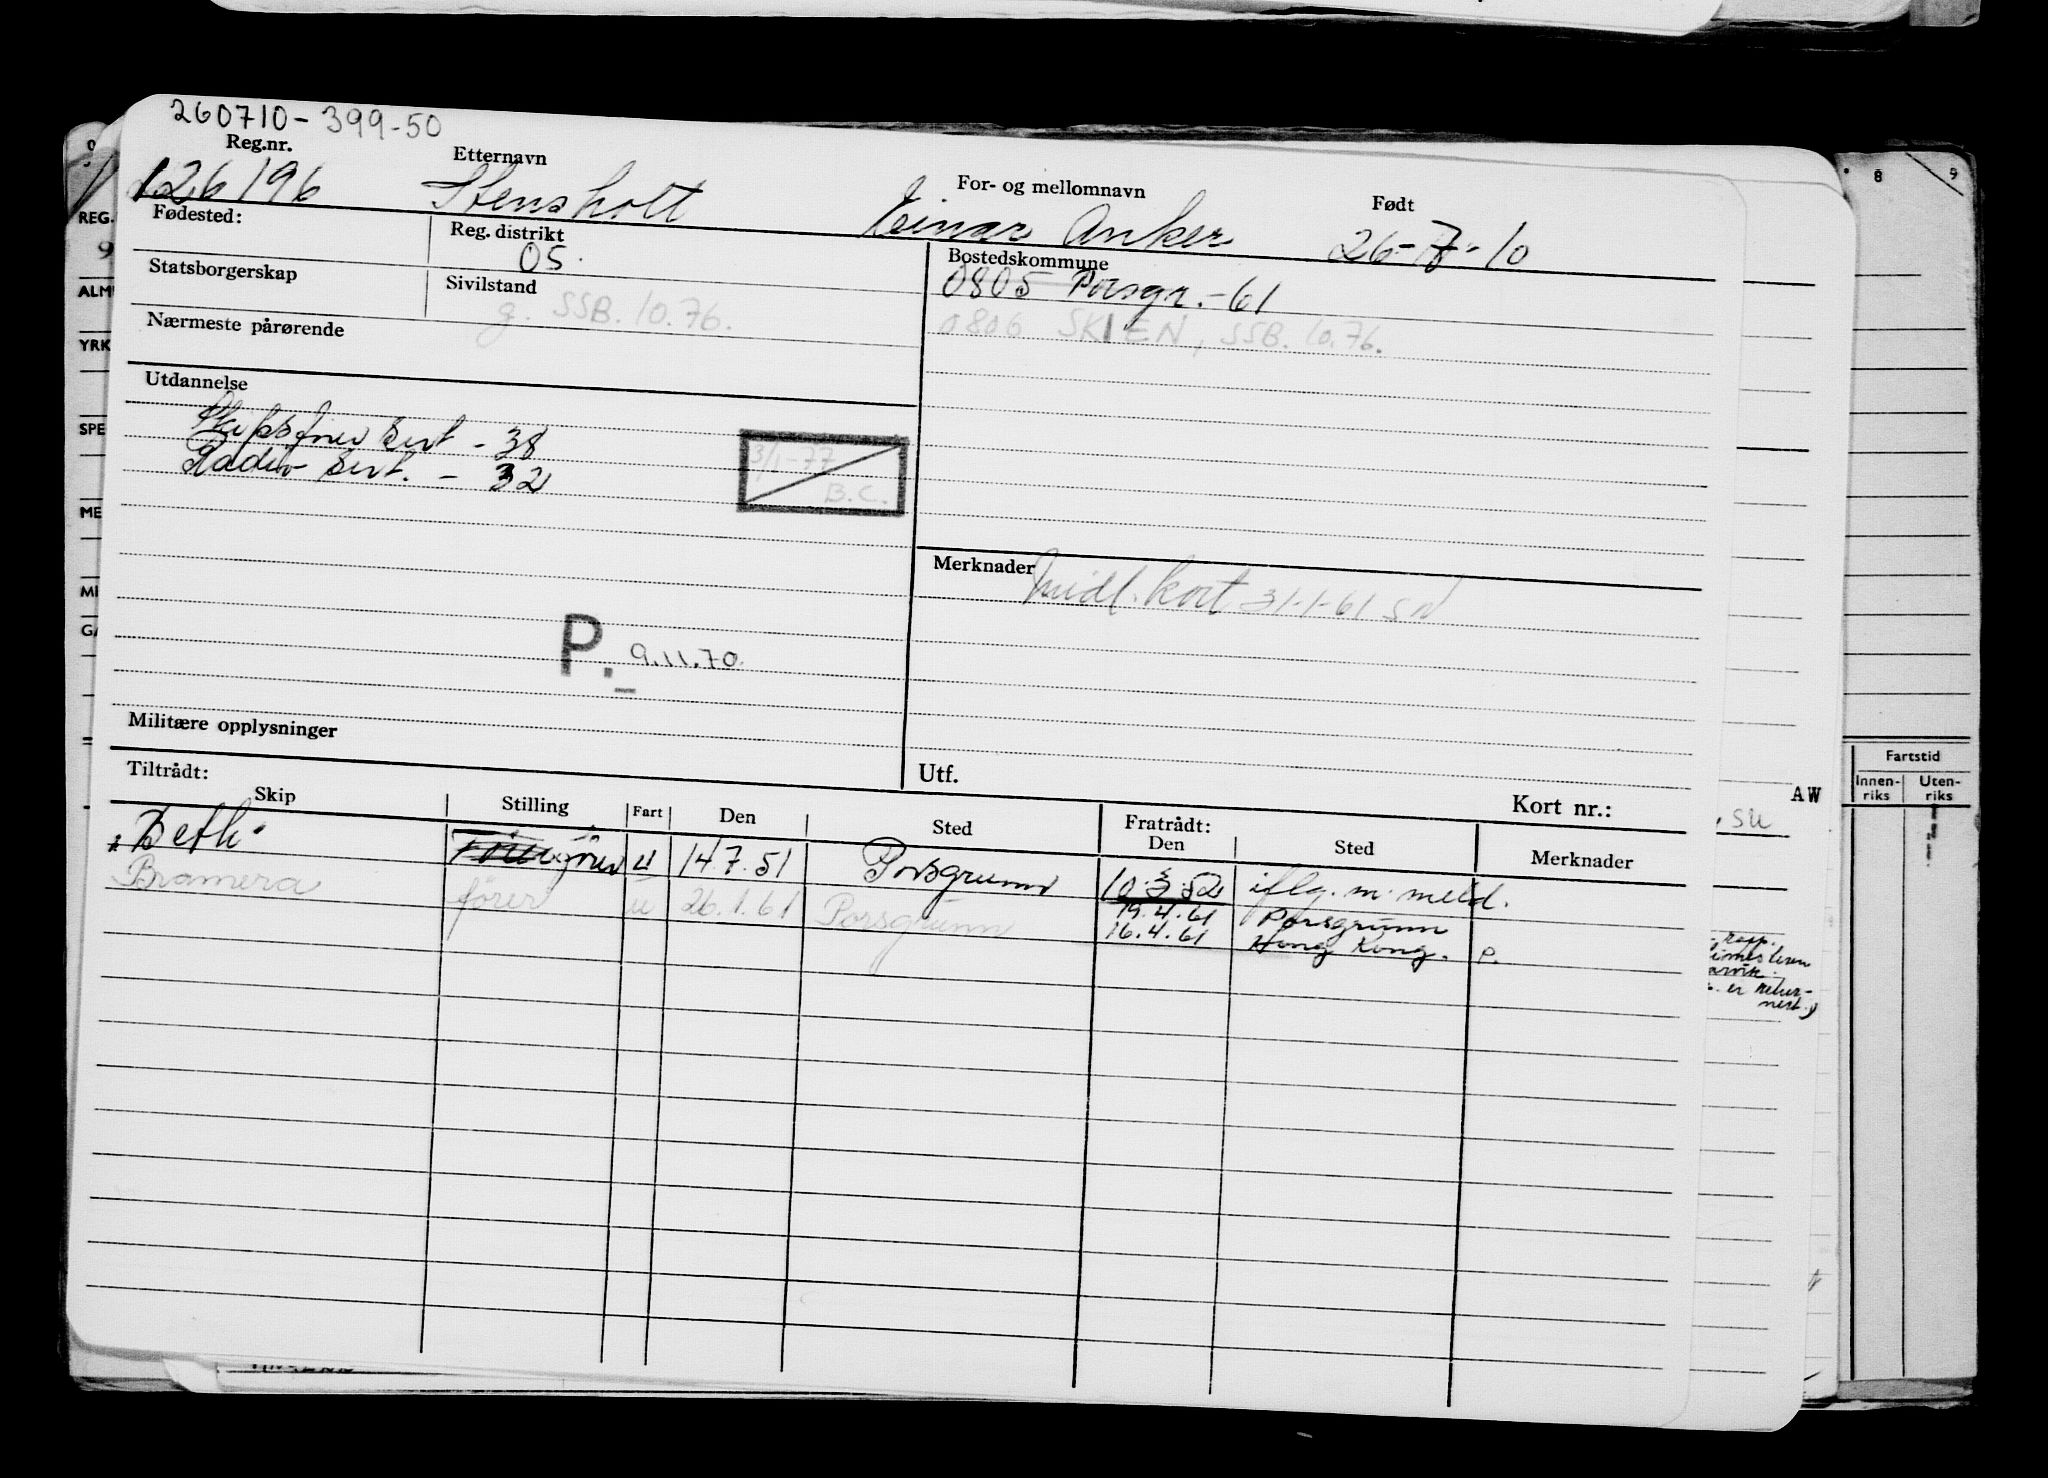 260710-399-50
Reg.nr. Etternavn For- og mellomnavn Født
126196 Stensholt Einar Anker 26-7-10
Fødested: Reg. distrikt Bostedskommune
05 0805 Porsgr. -61
Statsborgerskap Sivilstand
g. SSB. 10.76. 0806 SKIEN, SSB. 10.76.
Nærmeste pårørende
Utdannelse
sert - 38
Radio sert. - 32
3/1-77
B.C.
Merknader
Midl. kort 31-1-61
P. 9.11.70.
Militære opplysninger
Tiltrådt: Utf. Kort nr.:
Skip Stilling Fart Den Sted Fratrådt: Den Sted Merknader
Beth u 14.7.51 Porsgrunn 10.3.52 iflg. m. meld.
Bramera fører u 26.1.61 Porsgrunn 19.4.61 Porsgrunn
16.4.61 Hong Kong. P.
REG.
9
ALM
YRK
SPE
ME
MI
GA
8 9
Fartstid
Innen-
riks
Uten-
riks
AW
su
er retur-
nert.)